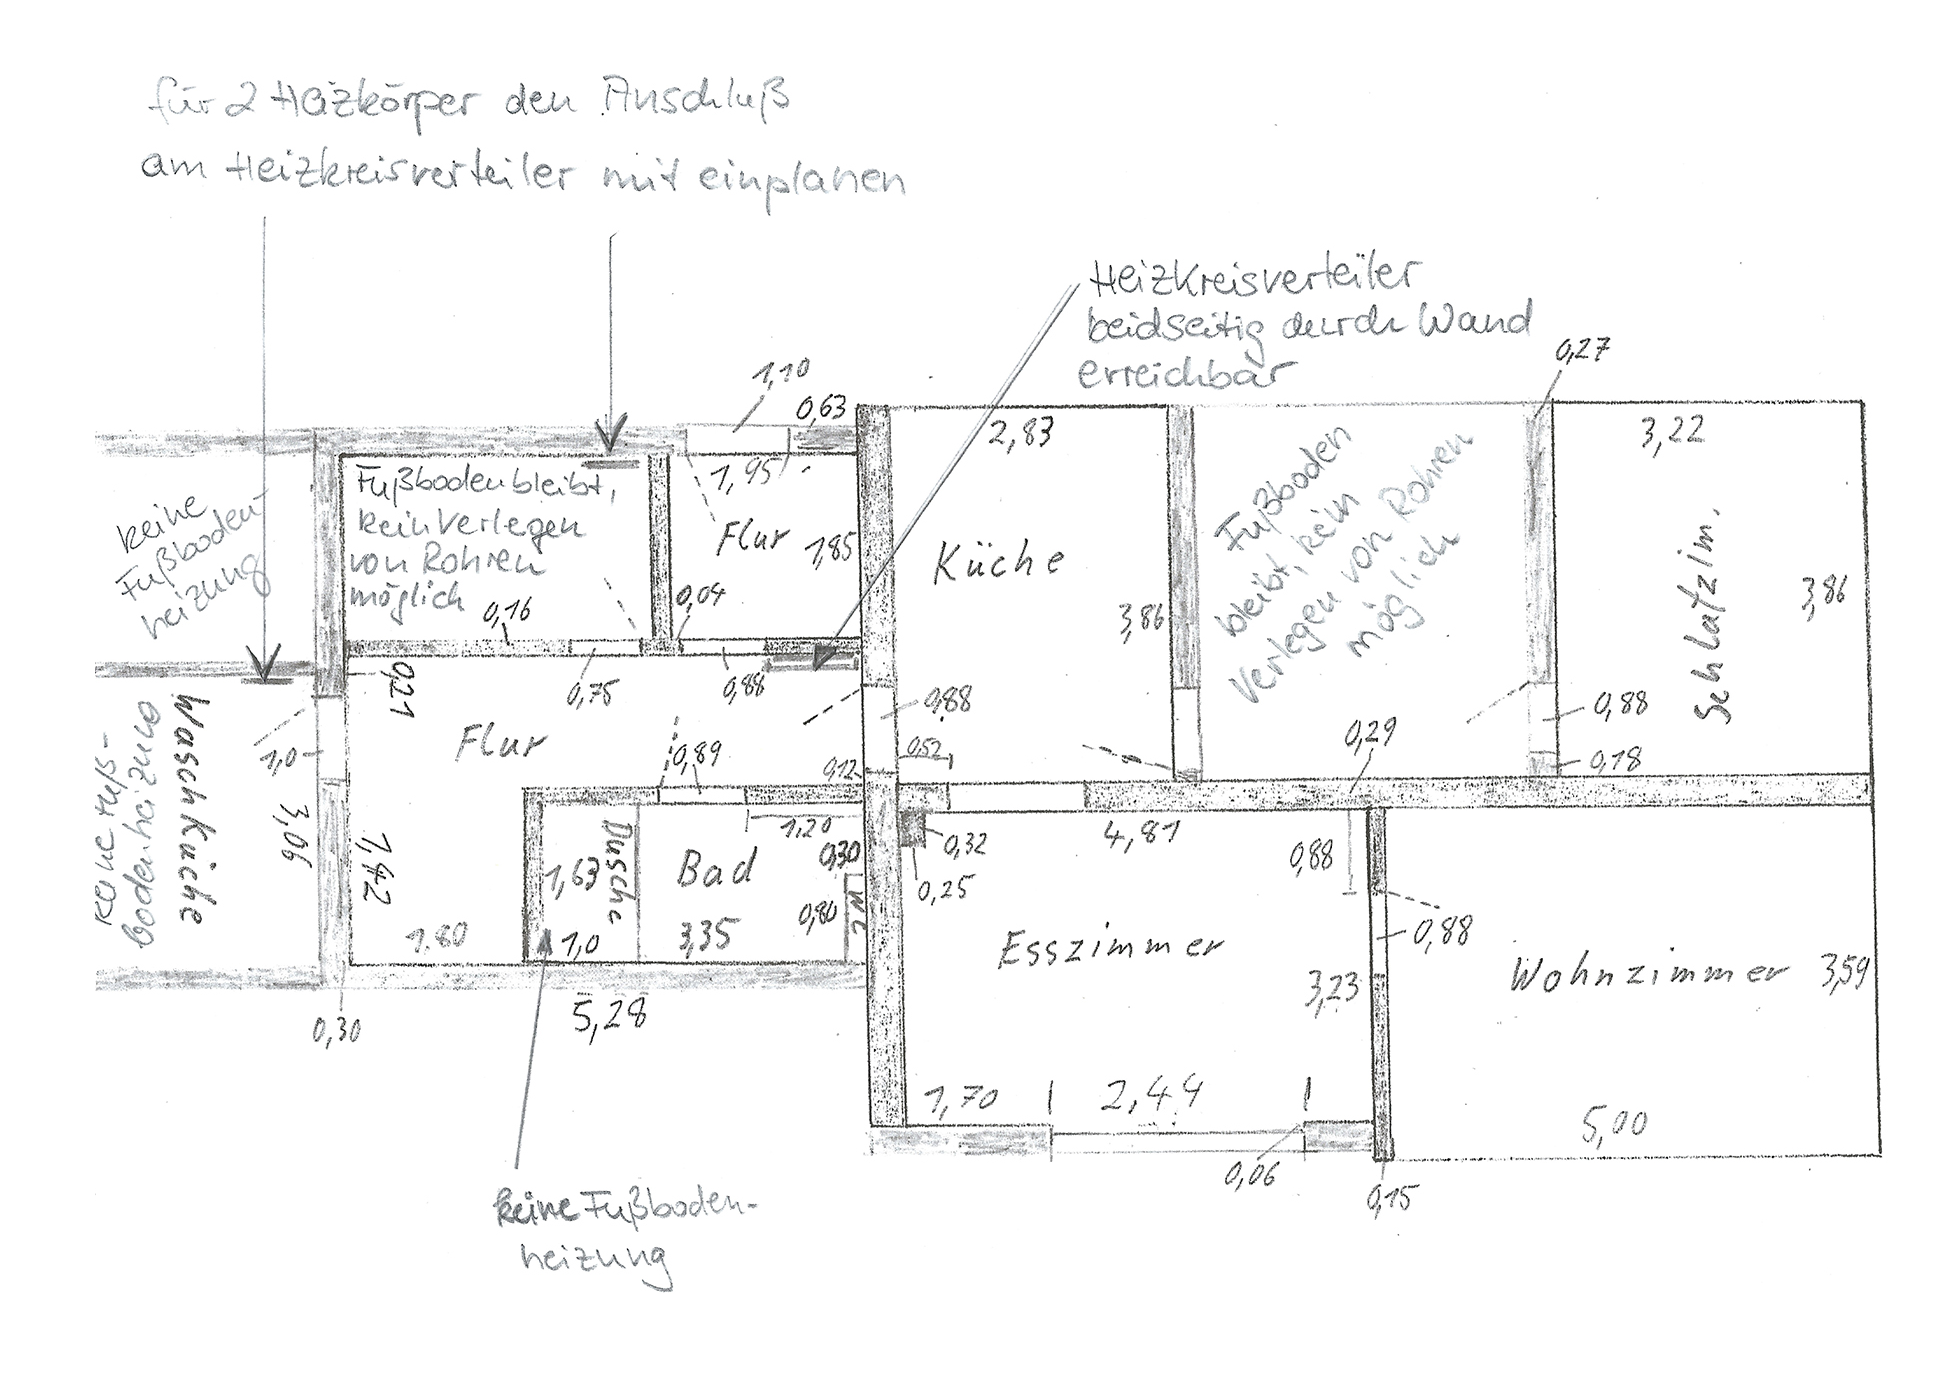 für 2 Heizkörper den Anschluß
am Heizkreisverteiler mit einplanen
Heizkreisverteiler
beidseitig durch Wand
erreichbar
0,27
1,10
0,63
2,83
3,22
1,95
Fußboden bleibt,
kein Verlegen
von Rohren
möglich
keine
Fußboden-
heizung
Flur
1,85
Küche
3,86
Fußboden
bleibt, kein
Verlegen von Rohren
möglich
Schlafzim.
3,86
0,16
0,04
0,21
0,75
0,88
0,88
0,88
0,18
0,29
0,52
Flur
0,89
0,12
1,0
Waschküche
keine Fuß-
bodenheizung
3,06
1,42
1,80
1,63
Dusche
1,0
Bad
3,35
1,20
0,30
0,80
WC
0,32
0,25
4,81
0,88
0,88
Esszimmer
3,23
Wohnzimmer
3,59
0,30
5,28
1,70
2,44
0,06
0,15
5,00
keine Fußboden-
heizung